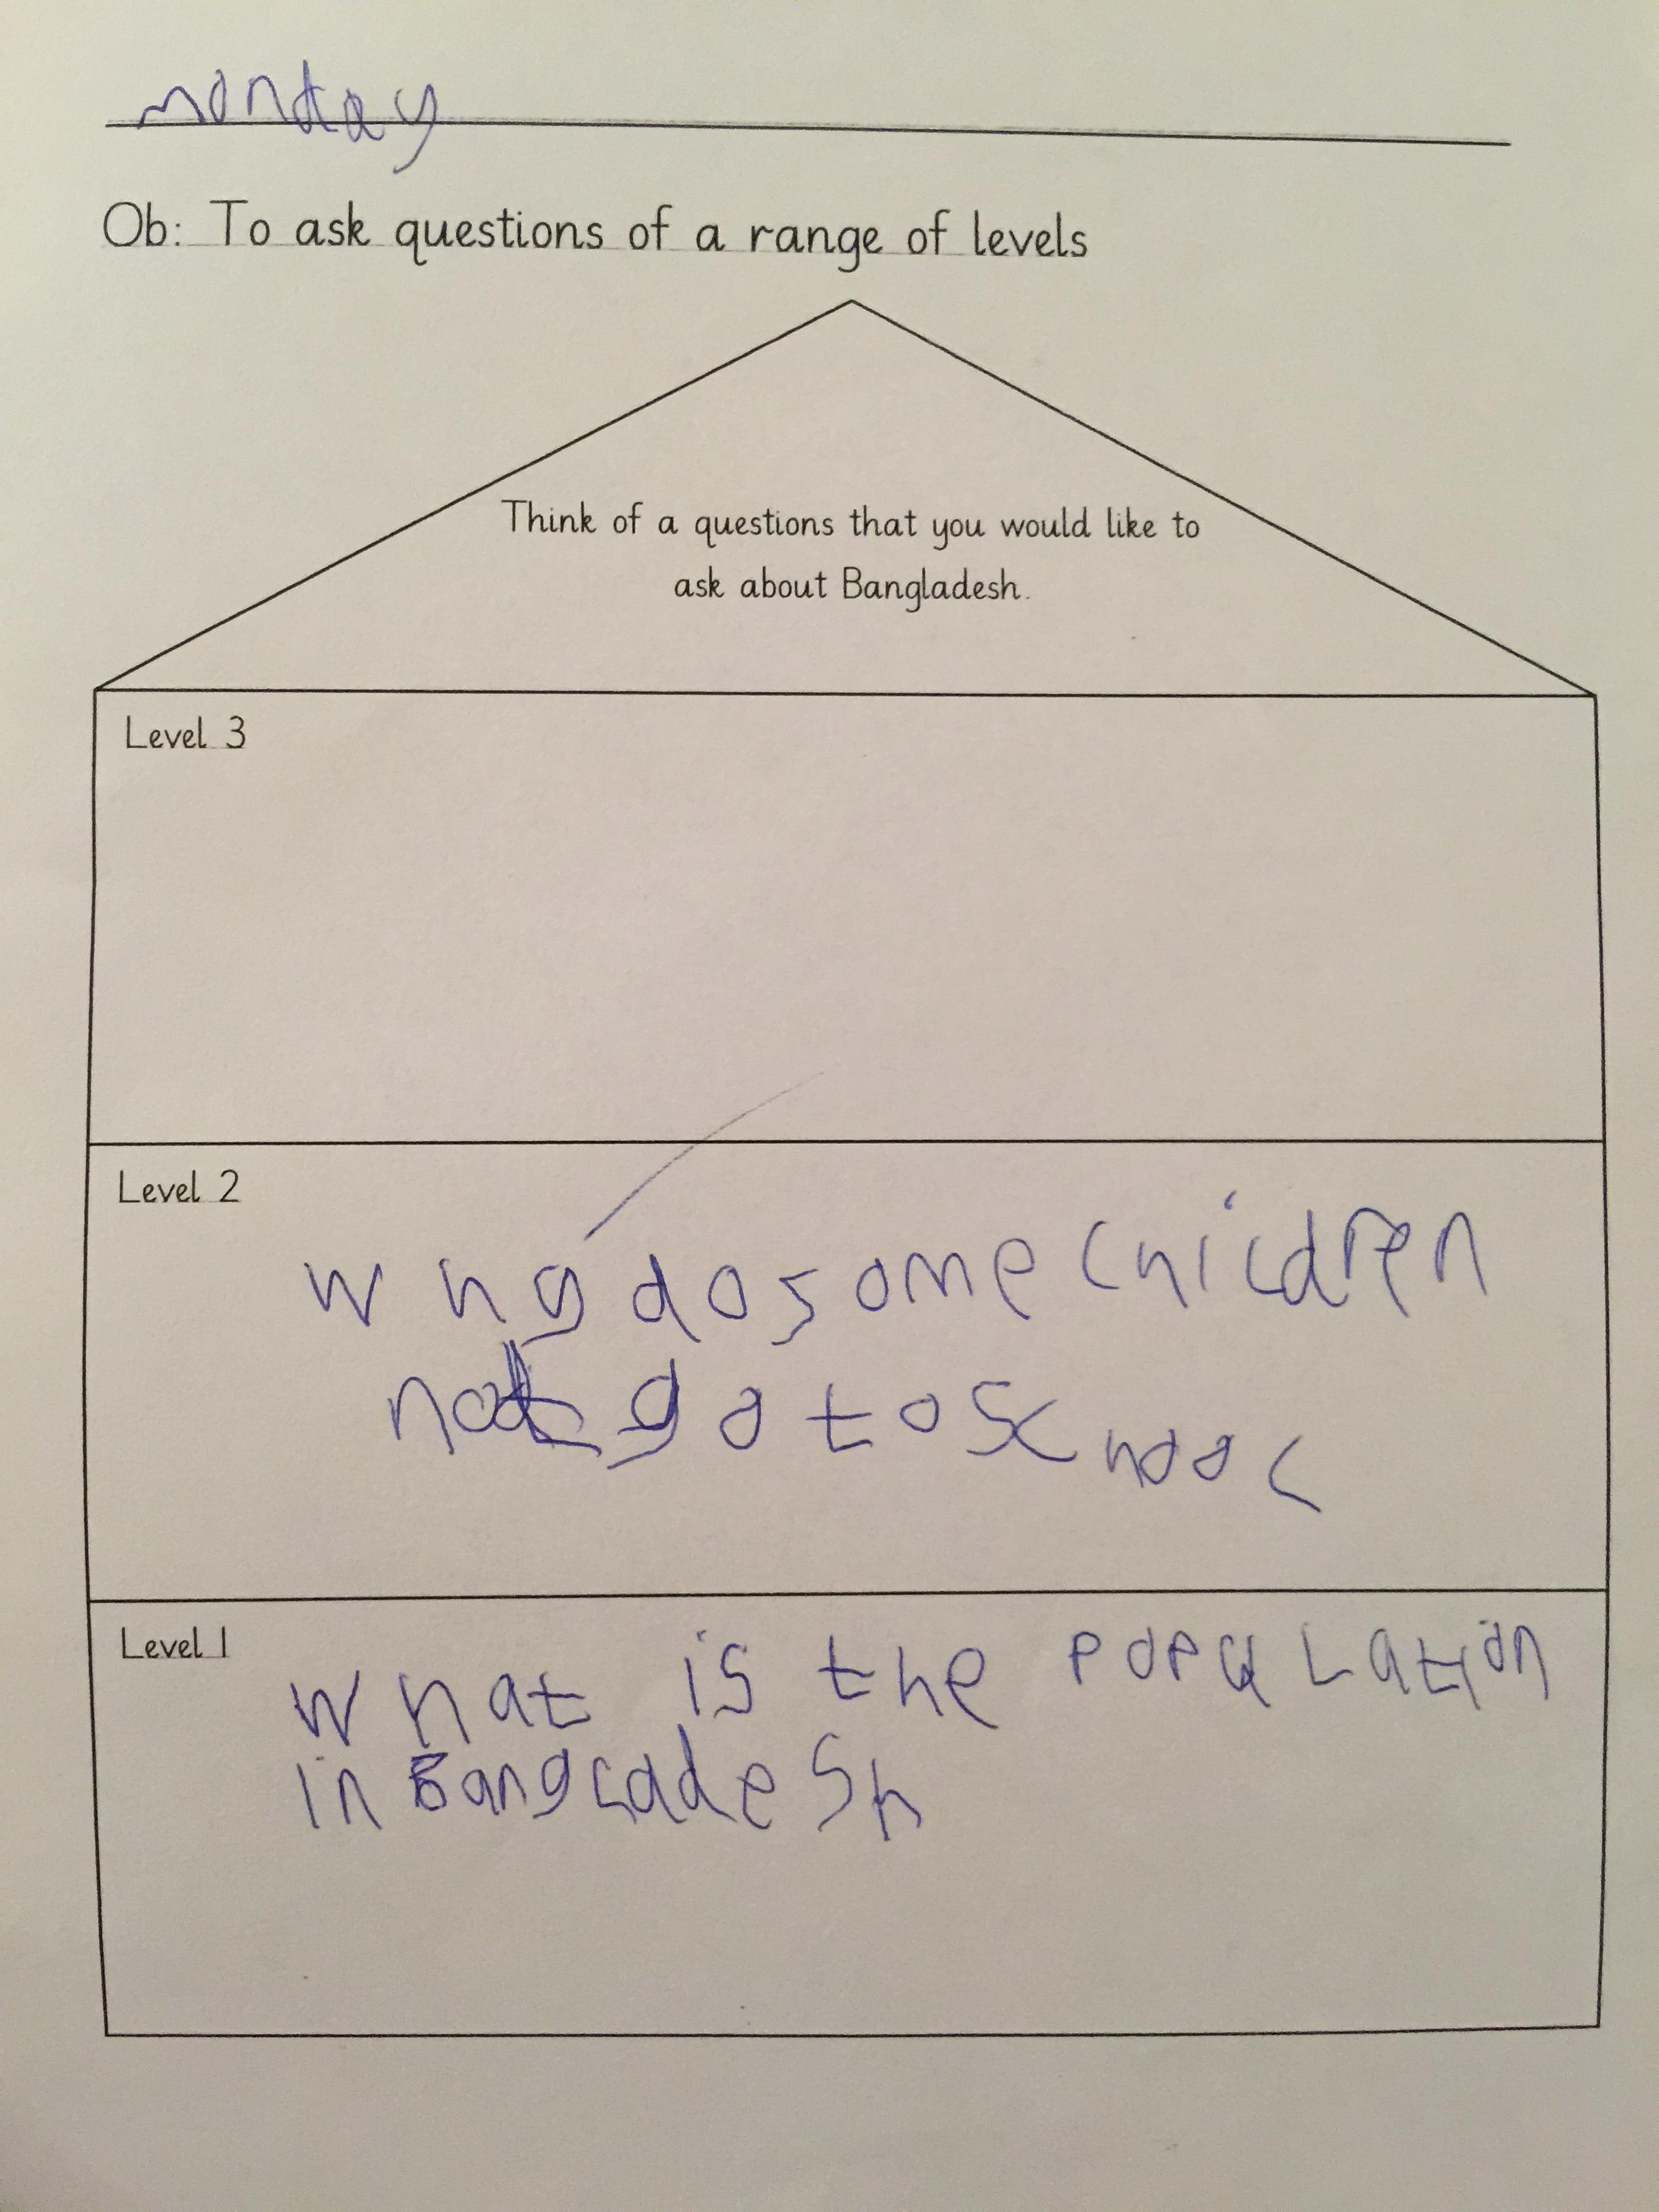 monday
Ob: To ask questions of a range of levels
Think of a questions that you would like to
ask about Bangladesh.
Level 3
Level 2
why do some children
not go to school
Level 1
What is the population
in Bangladesh